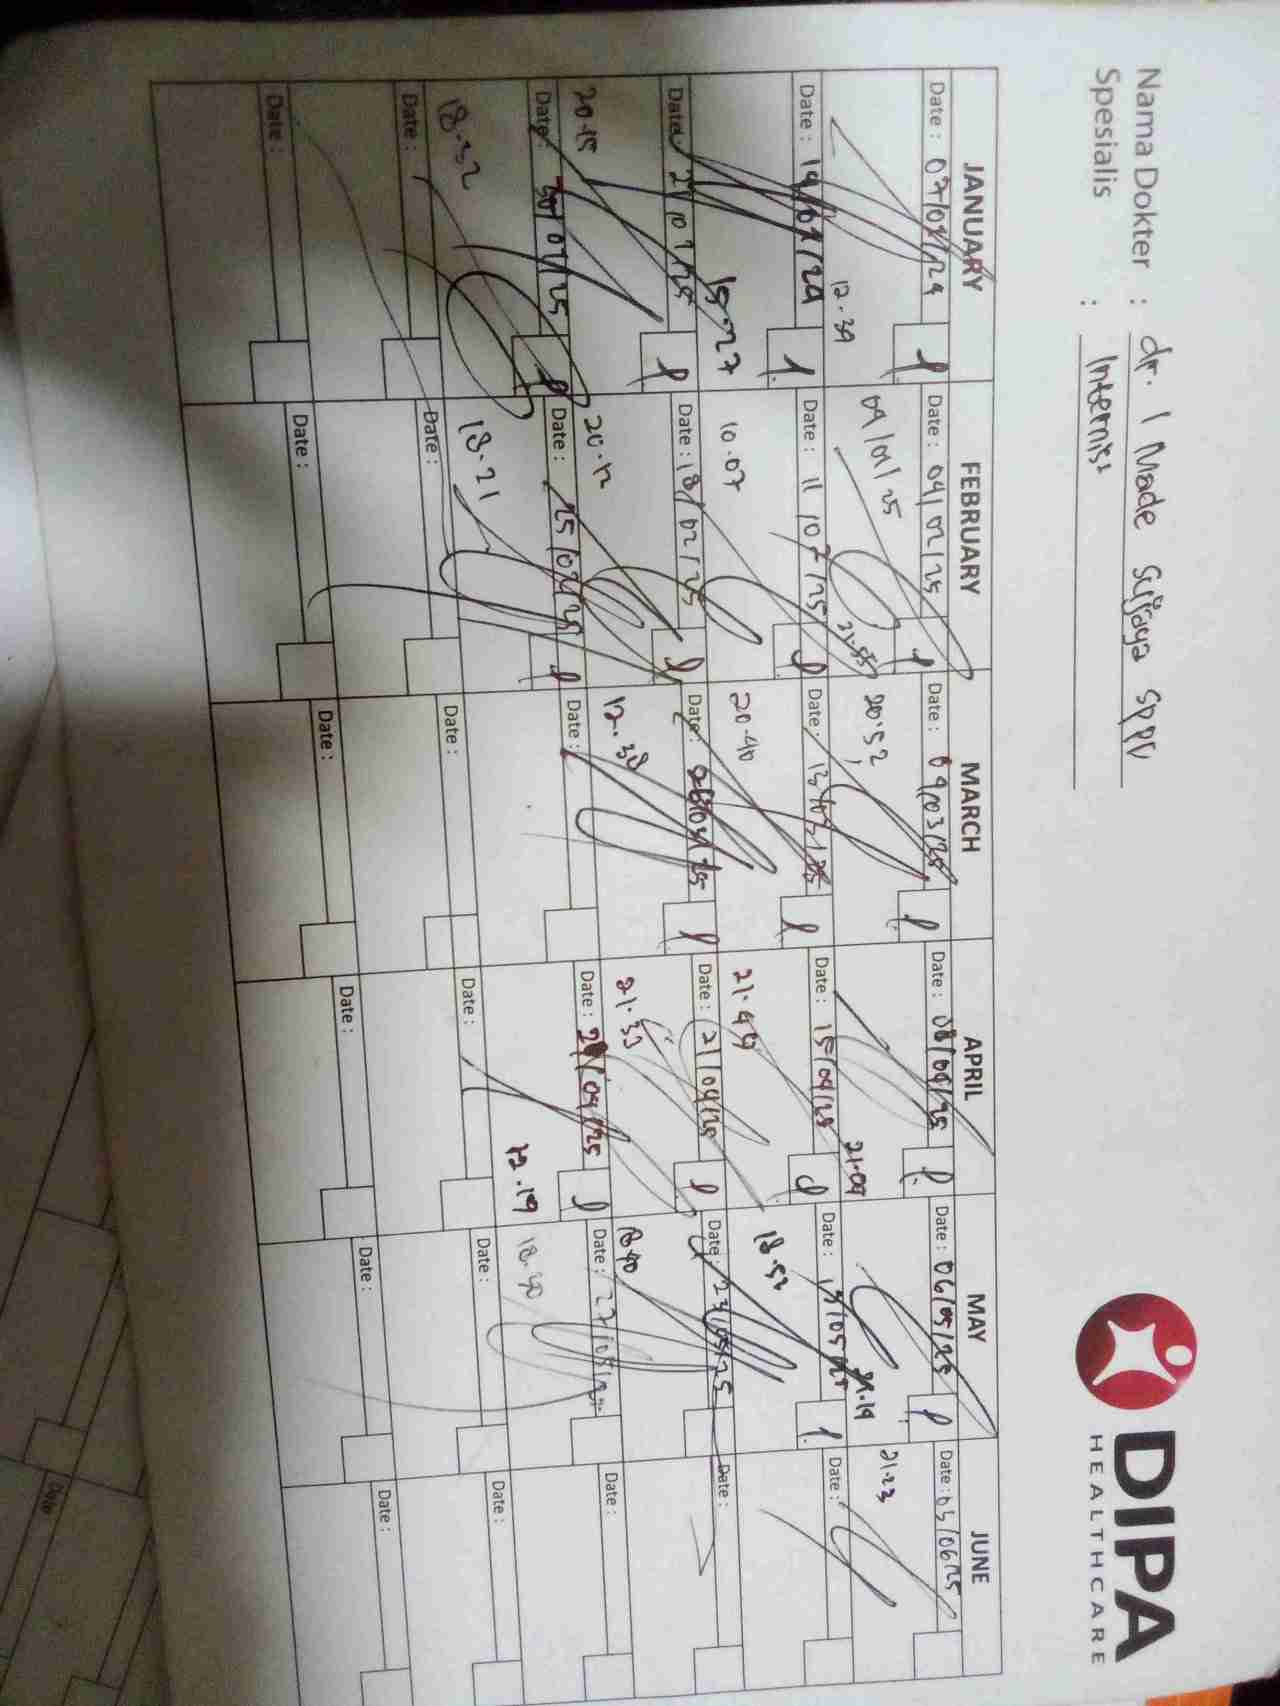 Nama Dokter : dr. I Made Sujaya SpPD
Spesialis : Internist
DIPA
HEALTHCARE
JANUARY FEBRUARY MARCH APRIL MAY JUNE
Date : 07/01/24 Date : 04/02/25 Date : 04/03/25 Date : 08/04/25 Date : 06/05/25 Date : 03/06/25
12.39 04/01/25 20.52 21.09 21.19 21.23
21.55
Date : 14/01/24 Date : 11/02/25 Date : 13/03/25 Date : 15/04/25 Date : 13/05/25 Date :
15.27 10.07 20.40 21.47 18.52
Date : 21/01/25 Date : 18/02/25 Date : Date : 21/04/25 Date : 23/05/25 Date :
20.15 20.12 12.38 21.33 18.40
Date : 30/01/25 Date : 25/02/25 Date : Date : 29/04/25 Date : 27/05/25 Date :
18.32 18.21 12.19 18.40
Date : Date : Date : Date : Date : Date :
Date : Date : Date : Date : Date : Date :